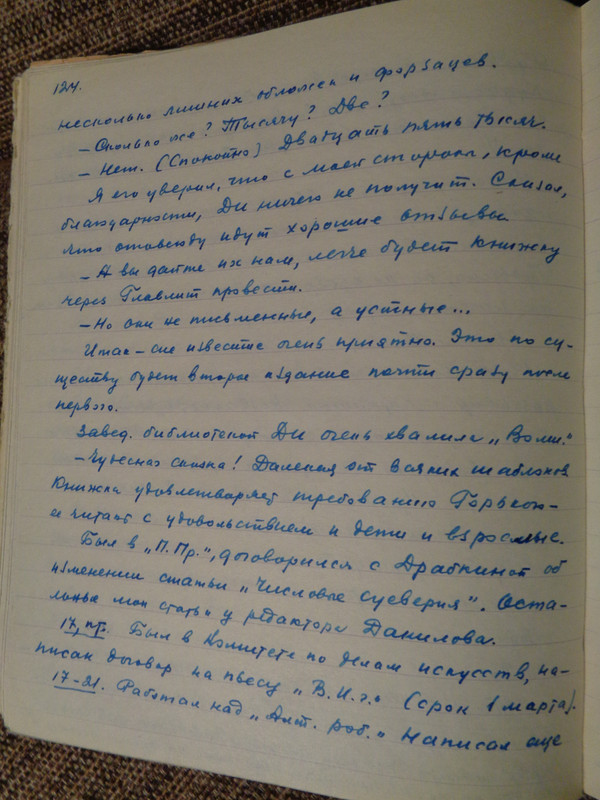 124.
несколько лишних обложек и форзацев.
– Сколько же? Тысячу? Две?
– Нет. (Спокойно) Двадцать пять тысяч.
Я его уверил, что с моей стороны, кроме
благодарности, ДИ ничего не получит. Сказал,
что отовсюду идут хорошие отзывы.
– А вы дайте их нам, легче будет книжку
через Главлит провести.
– Но они не письменные, а устные...
Итак – сие известие очень приятно. Это по су-
ществу будет второе издание почти сразу после
первого.
Завед. библиотекой ДИ очень хвалила „Волш."
– Чудесная сказка! Далекая от всяких шаблонов.
Книжка удовлетворяет требованию Горького –
ее читают с удовольствием и дети и взрослые.
Был в „П.Пр.", договорился с Драбкиной об
изменении статьи „Числовые суеверия". Оста-
льные мои статьи у редактора Данилова.
17, пт. Был в Комитете по делам искусств, на-
писан договор на пьесу „В.И.г." (срок 1 марта).
17–21. Работал над „Алт. роб." Написал еще